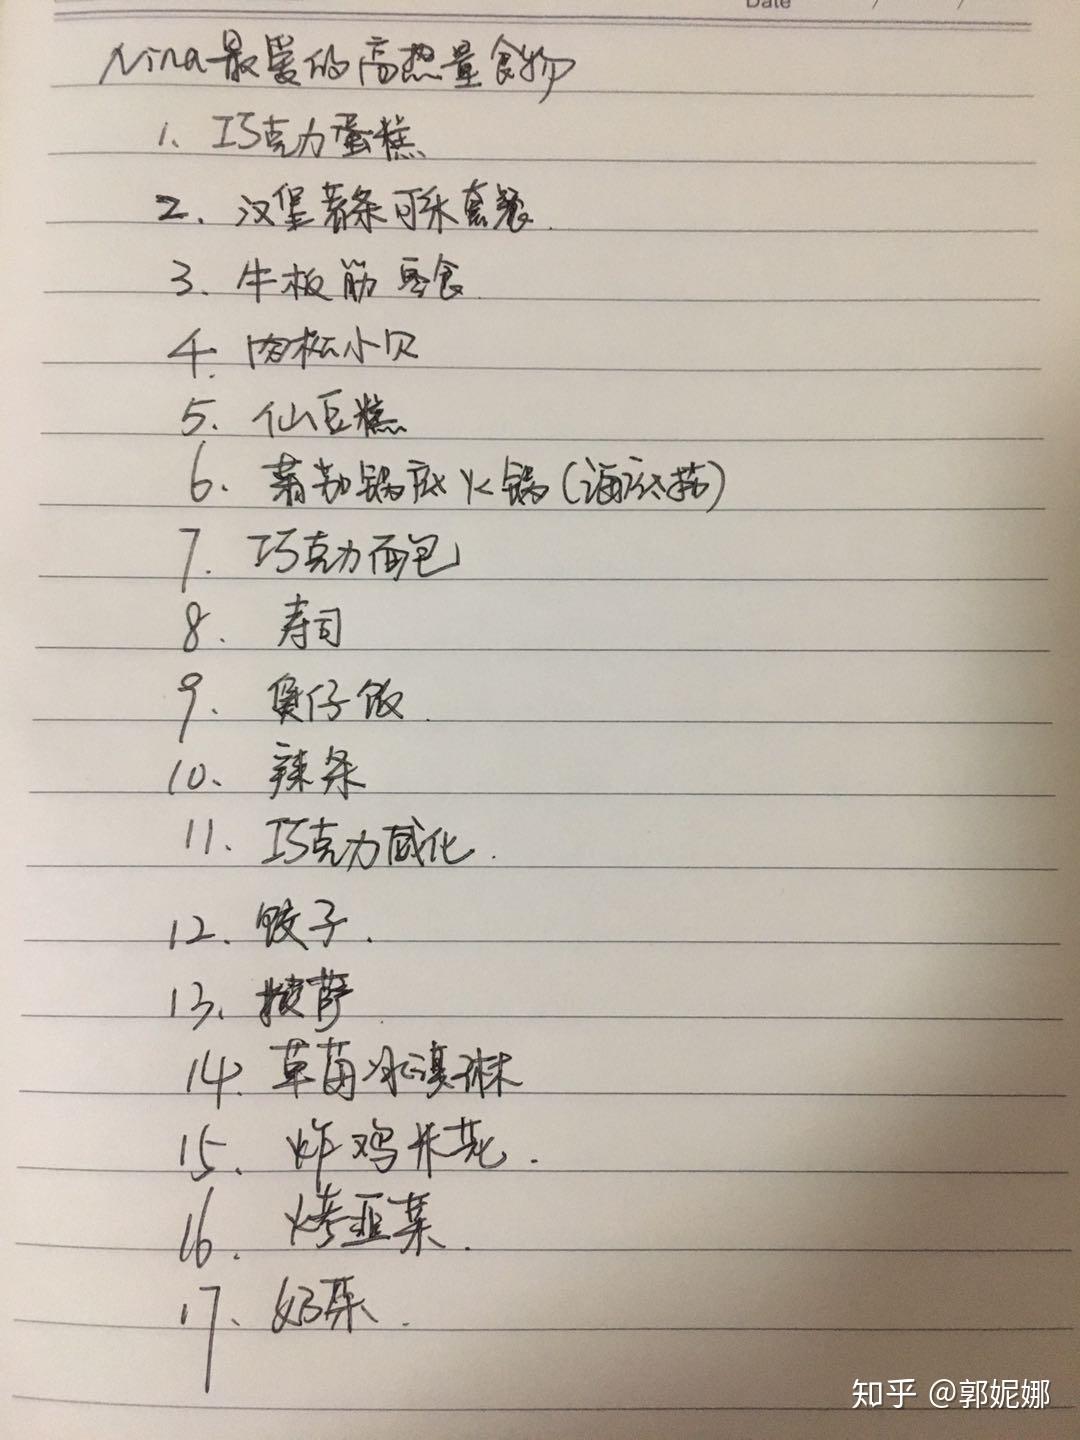 Date / /
Nina最爱的高热量食物
1、巧克力蛋糕
2、汉堡薯条可乐套餐.
3、牛板筋零食
4、肉松小贝
5、仙豆糕
6、番茄锅底火锅(海底捞)
7、巧克力面包
8、寿司
9、煲仔饭.
10、辣条
11、巧克力威化.
12、饺子.
13、披萨.
14、草莓冰淇淋
15、炸鸡米花.
16、烤韭菜.
17、奶茶.
知乎 @郭妮娜